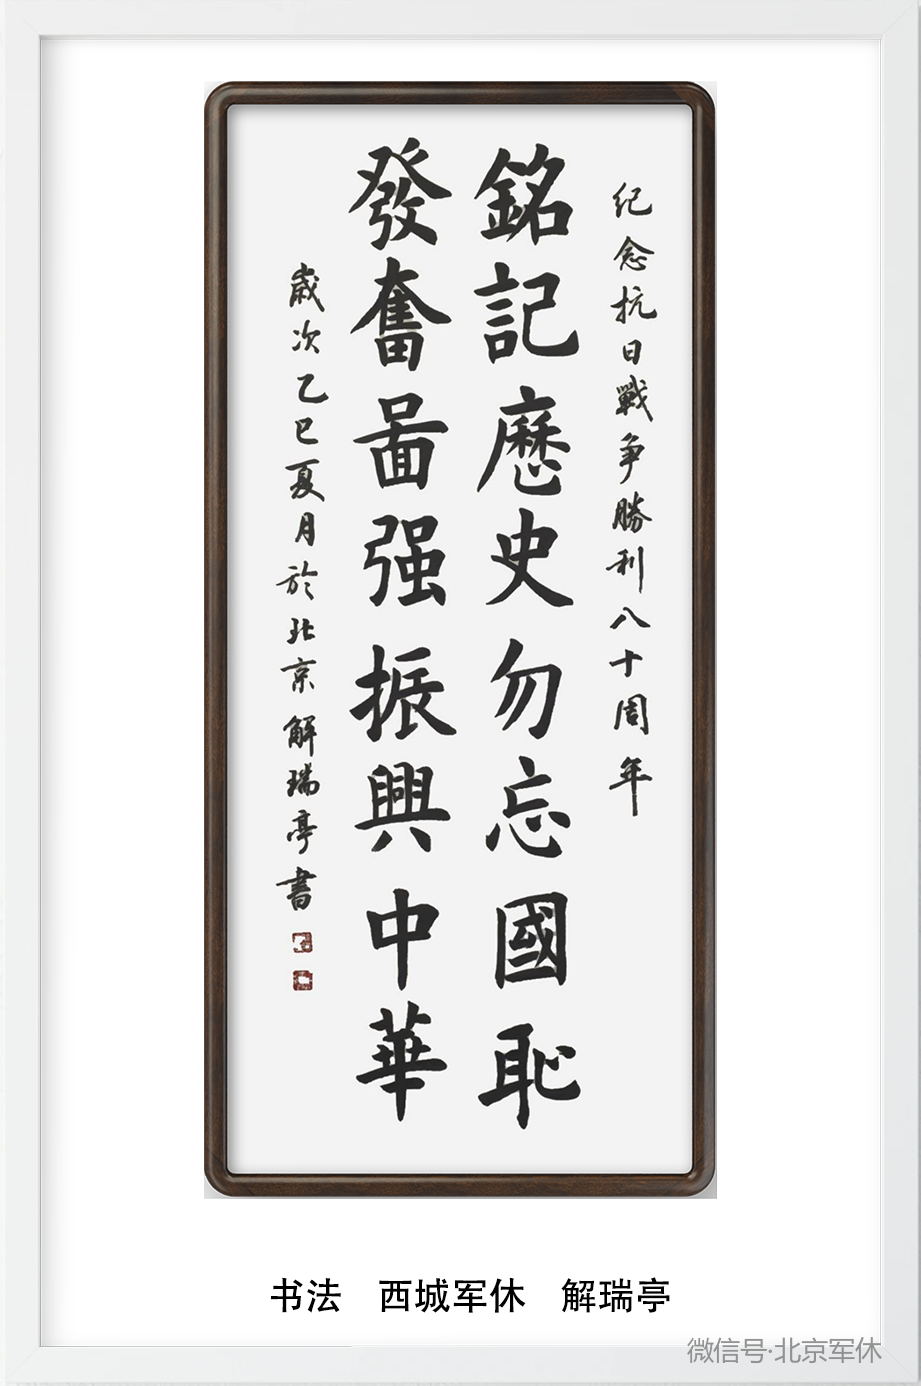 纪念抗日戰争勝利八十周年
銘記歷史勿忘國恥
發奮啚强振興中華
歲次乙巳夏月於北京解瑞亭書
书法　西城军休　解瑞亭
微信号·北京军休